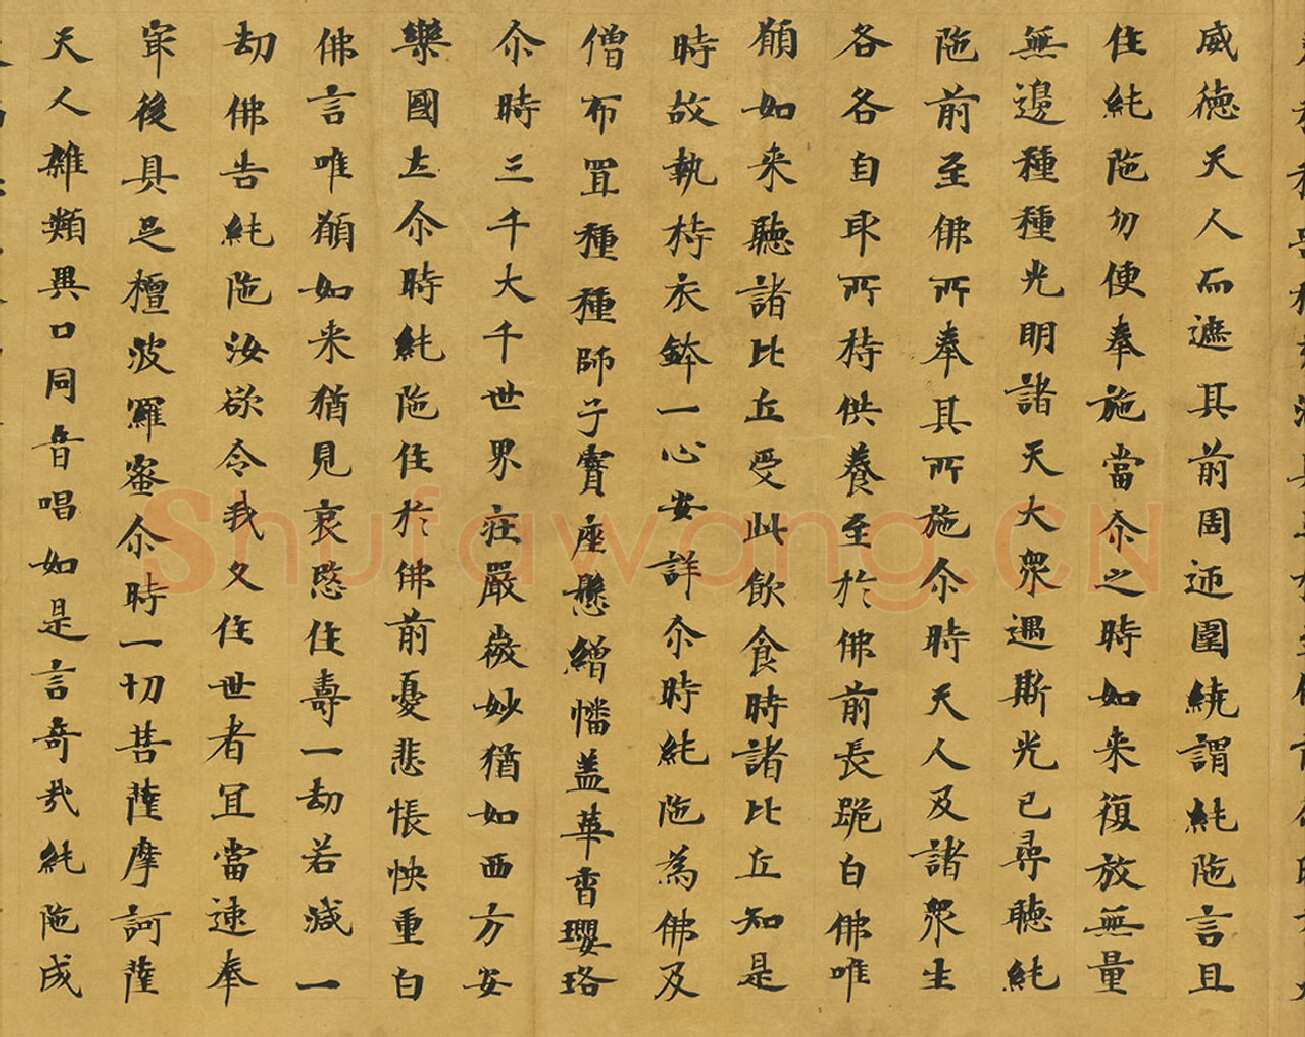 威德天人而遮其前周迊圍繞謂純陁言且
住純陁勿便奉施當尒之時如来復放無量
無邊種種光明諸天大衆遇斯光已尋聽純
陁前至佛所奉其所施尒時天人及諸衆生
各各自取所持供養至於佛前長跪白佛唯
願如来聽諸比丘受此飲食時諸比丘知是
時故執持衣鉢一心安詳尒時純陁為佛及
僧布置種種師子寶座懸繒幡盖華香瓔珞
尒時三千大千世界莊嚴微妙猶如西方安
樂國土尒時純陁住於佛前憂悲悵怏重白
佛言唯願如来猶見哀愍住壽一劫若減一
劫佛告純陁汝欲令我久住世者冝當速奉
㝡後具足檀波羅蜜尒時一切菩薩摩訶薩
天人雜類異口同音唱如是言奇哉純陁成
Shufawang.CN